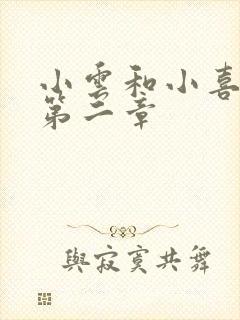 小雲和小喜
第二章
與寂寞共舞